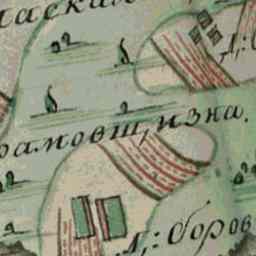 ласкал
Д,: С
рамовщ,изна.
Д,: Боров